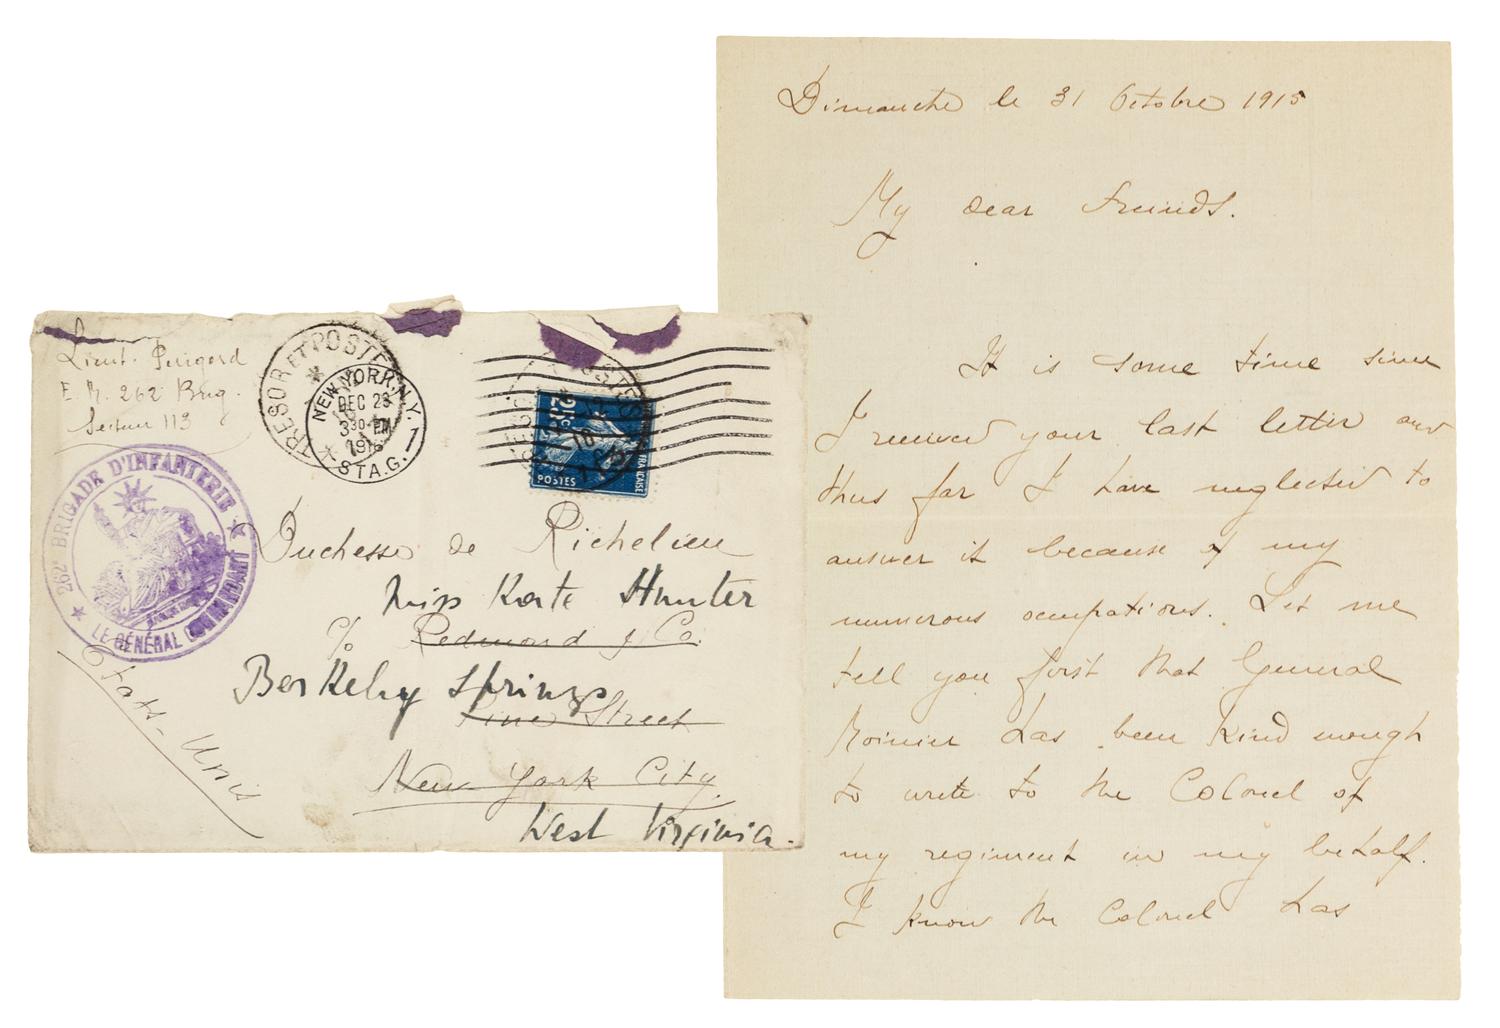 Lieut. Périgord
E. M. 262 Brig.
Secteur 113
TRESOR ET POSTES
NEW YORK, N.Y. 1
DEC 23
3 30 PM
1916
STA. G.
262e BRIGADE D'INFANTERIE
LE GÉNÉRAL COMMANDANT
25c
POSTES
FRANÇAISE
Duchesse de Richelieu
Miss Kate Hunter
c/o Redmond & Co.
Berkeley Springs
Pine Street
New York City
West Virginia.
Etats-Unis
Dimanche le 31 Octobre 1915
My dear Friends.
It is some time since
I received your last letter and
thus far I have neglected to
answer it because of my
numerous occupations. Let me
tell you first that General
Moinier has been kind enough
to write to the Colonel of
my regiment in my behalf.
I know the Colonel has